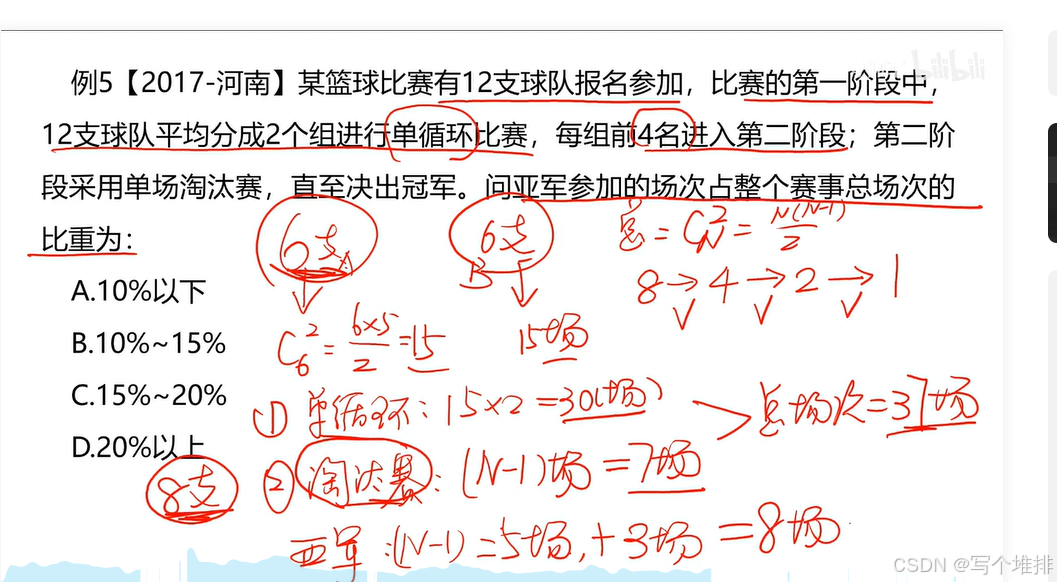 bilibili
例5【2017-河南】某篮球比赛有12支球队报名参加，比赛的第一阶段中，
12支球队平均分成2个组进行单循环比赛，每组前4名进入第二阶段；第二阶
段采用单场淘汰赛，直至决出冠军。问亚军参加的场次占整个赛事总场次的
比重为：
6支 A
6支 B
总 = C_N^2 = N(N-1)/2
8 → 4 → 2 → 1
A.10%以下
B.10%~15%
C_6^2 = 6×5/2 = 15
15场
C.15%~20%
① 单循环：15×2 = 30(场)
总场次 = 37场
D.20%以上
8支
② 淘汰赛：(N-1)场 = 7场
亚军：(N-1) = 5场, + 3场 = 8场
CSDN @写个堆排